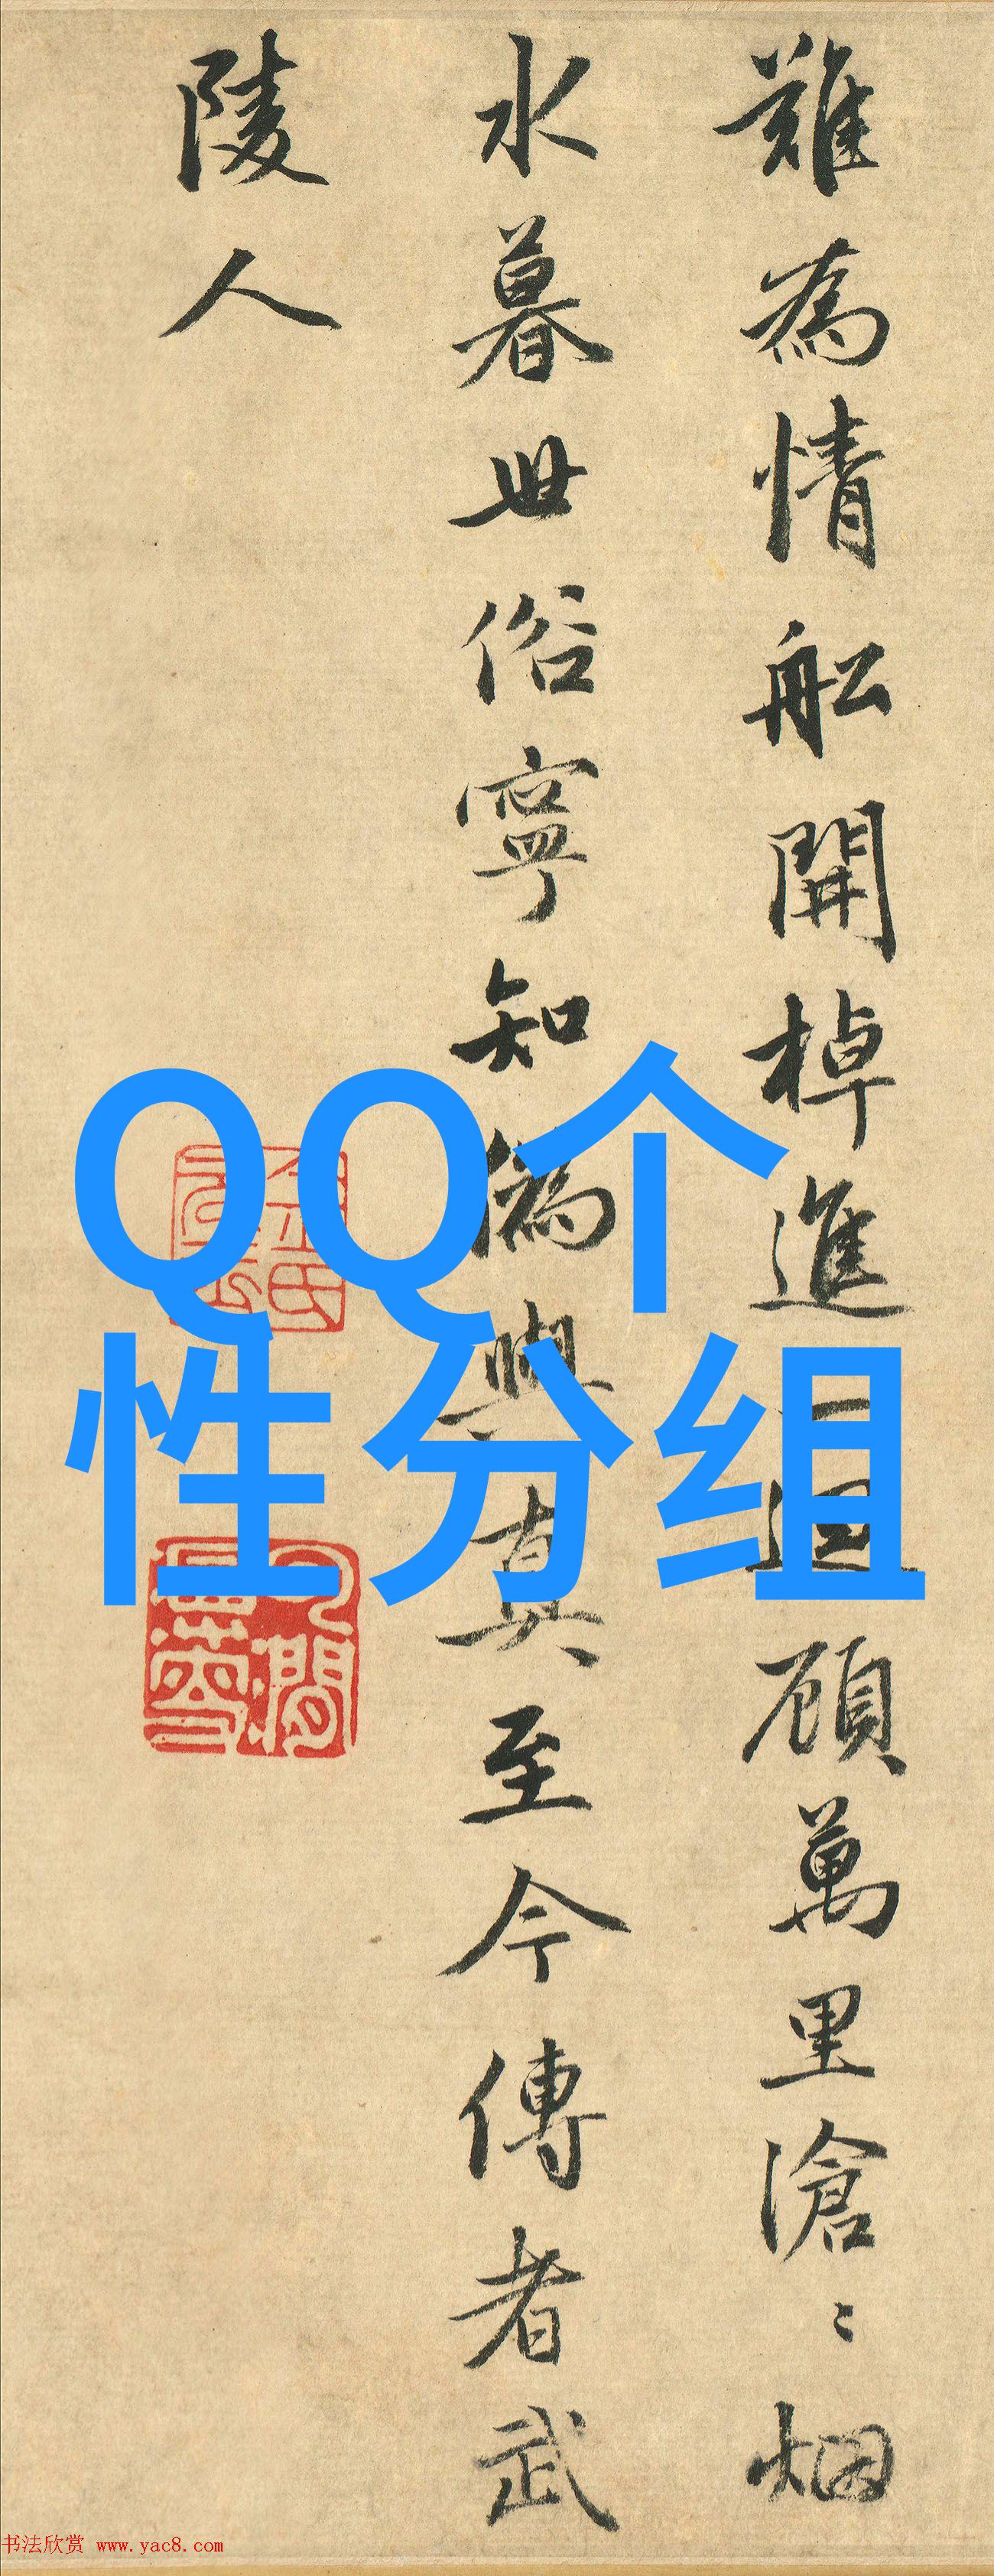 難為情舩開棹進一迴顧萬里滄〻烟
水暮世俗寧知偽與真至今傳者武
陵人
QQ个
性分组
书法欣赏 www.yac8.com